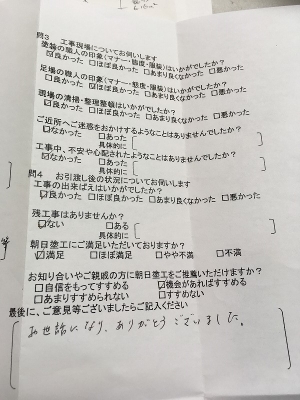 問3　工事現場についてお伺いします
塗装の職人の印象(マナー・態度・服装)はいかがでしたか?
☑良かった □ほぼ良かった □あまり良くなかった □悪かった
足場の職人の印象(マナー・態度・服装)はいかがでしたか?
□良かった ☑ほぼ良かった □あまり良くなかった □悪かった
現場の清掃・整理整頓はいかがでしたか?
☑良かった □ほぼ良かった □あまり良くなかった □悪かった
ご近所へご迷惑をおかけするようなことはありませんでしたか?
☑なかった □あった
具体的に[ ]
工事中、不安や心配されたようなことはありませんでしたか?
☑なかった □あった
具体的に[ ]
問4　お引渡し後の状況についてお伺いします
工事の出来ばえはいかがでしたか?
☑良かった □ほぼ良かった □あまり良くなかった □悪かった
残工事はありませんか?
☑ない □ある
具体的に[ ]
朝日塗工にご満足いただいておりますか?
☑満足 □ほぼ満足 □やや不満 □不満
お知り合いやご親戚の方に朝日塗工をご推薦いただけますか?
□自信をもってすすめる ☑機会があればすすめる
□あまりすすめられない □すすめない
最後に、ご意見等ございましたらご記入ください
お世話になり、ありがとうございました。